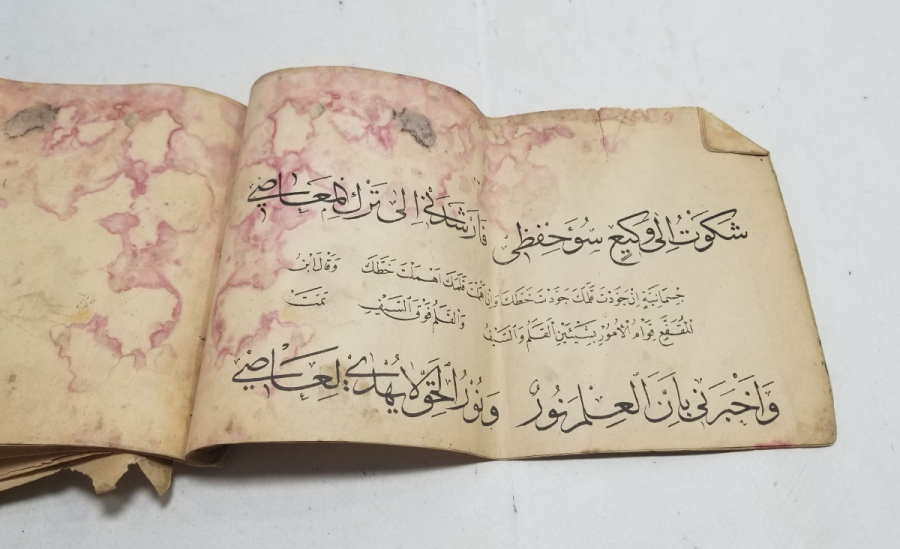 شَكَوْتُ إِلَى وَكِيعٍ سُوءَ حِفْظِي فَأَرْشَدَنِي إِلَى تَرْكِ الْمَعَاصِي
جسمانية إن جودت قلمك جودت خطك وإن أهملت قلمك أهملت خطك وقال ابن
المقفع قوام الأمور بشيئين القلم والسيف والقلم فوق السيف تمت
وَأَخْبَرَنِي بِأَنَّ الْعِلْمَ نُورٌ وَنُورُ الْحَقِّ لَا يُهْدَى لِعَاصِي